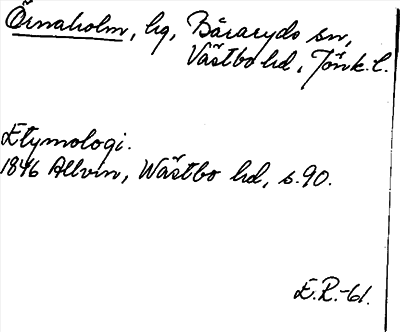 Örnaholm, hg, Båraryds sn,
Västbo hd, Jönk. l.
Etymologi.
1846 Allvin, Wästbo hd, s. 90.
E.R.-61.